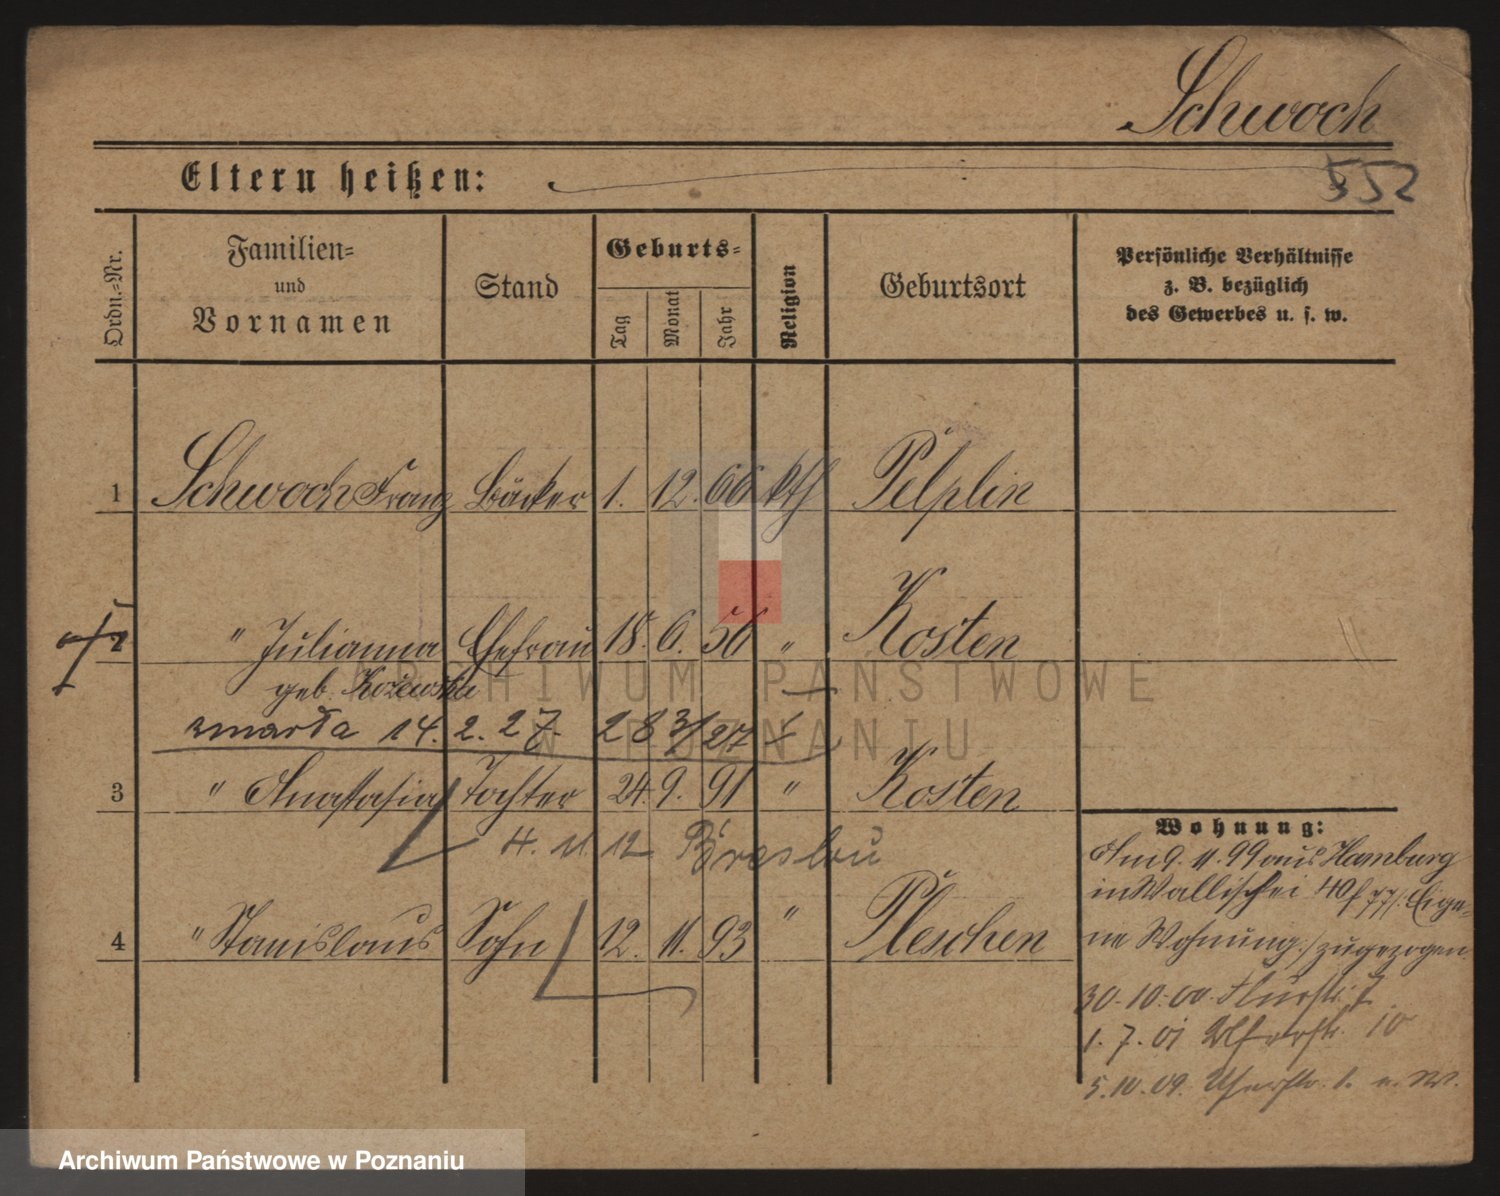 Schwoch
Eltern heißen:
552
Ordn.-Nr.
Familien-
und
Vornamen
Stand
Geburts-
Tag
Monat
Jahr
Religion
Geburtsort
Persönliche Verhältnisse
z. B. bezüglich
des Gewerbes u. s. w.
1 Schwoch Franz Bäcker 1. 12. 66 kth Pelplin
2 " Julianna Ehefrau 18. 6. 56 " Kosten
geb.
zmarła 14. 2. 27. 28 3/27
3 " Anastasia Tochter 24. 9. 91 " Kosten
4. 11. 12 Breslau
4 " Stanislaus Sohn 12. 11. 93 " Pleschen
Wohnung:
Am 9. 11. 99 aus Hamburg
in Wallischei 40 Eige-
ne Wohnung./ zugezogen.
30. 10. 00. Flurstr. 7
1. 7. 01 10
5. 10. 09. Uferstr. 1. e. W.
ARCHIWUM PAŃSTWOWE
W POZNANIU
Archiwum Państwowe w Poznaniu